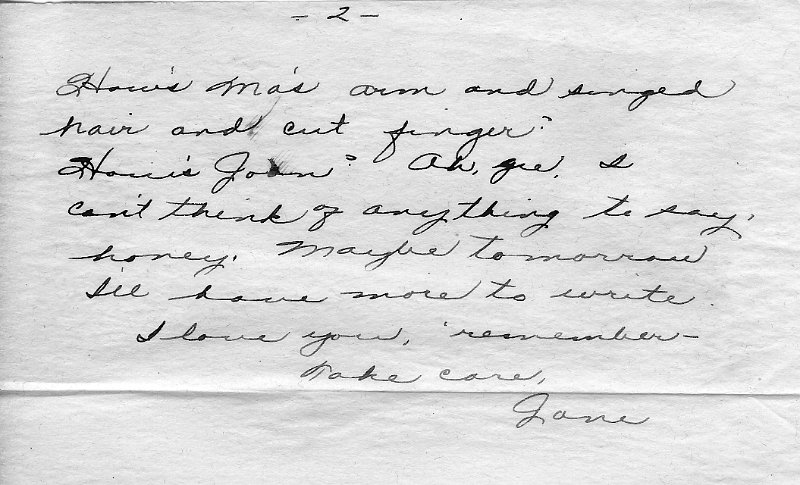 - 2 -
How's Ma's arm and singed
hair and cut finger?
How's Joan? Ah, gee, I
can't think of anything to say,
honey. Maybe tomorrow
I'll have more to write.
I love you, remember -
Take care,
Jane